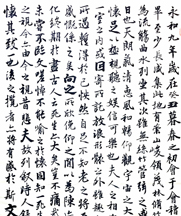 永和九年歲在癸丑暮春之初會于會稽
畢至少長咸集此地有崇山峻領茂林
為流觴曲水列坐其次雖無絲竹管弦之
日也天朗氣清惠風和暢仰觀宇宙之大
懷足以極視聽之娛信可樂也夫人之相
一室之内或因寄所託放浪形骸之外雖趣
所遇暫得於己快然自足不知老之將至
感慨係之矣向之所欣俛仰之間以為陳
化終期於盡古人云死生亦大矣豈不痛哉
未嘗不臨文嗟悼不能喻之於懷固知死生
之視今亦由今之視昔悲夫故列敘時人錄
懷其致一也後之攬者亦將有感於斯文